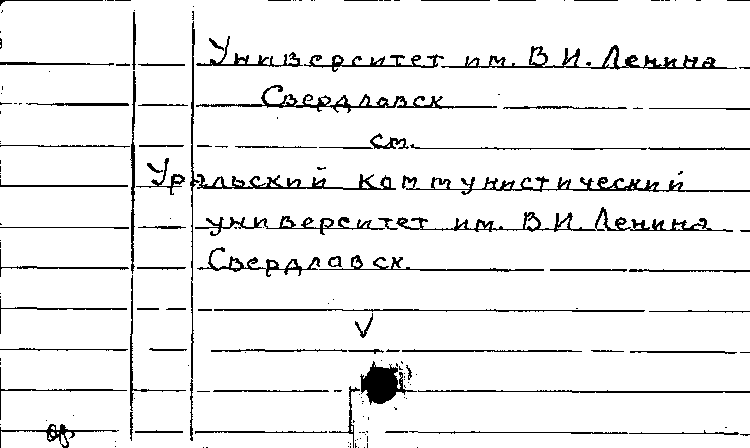 Университет им. В.И. Ленина
Свердлавск
см.
Уральский коммунистический
университет им. В.И. Ленина
Свердлавск.
V